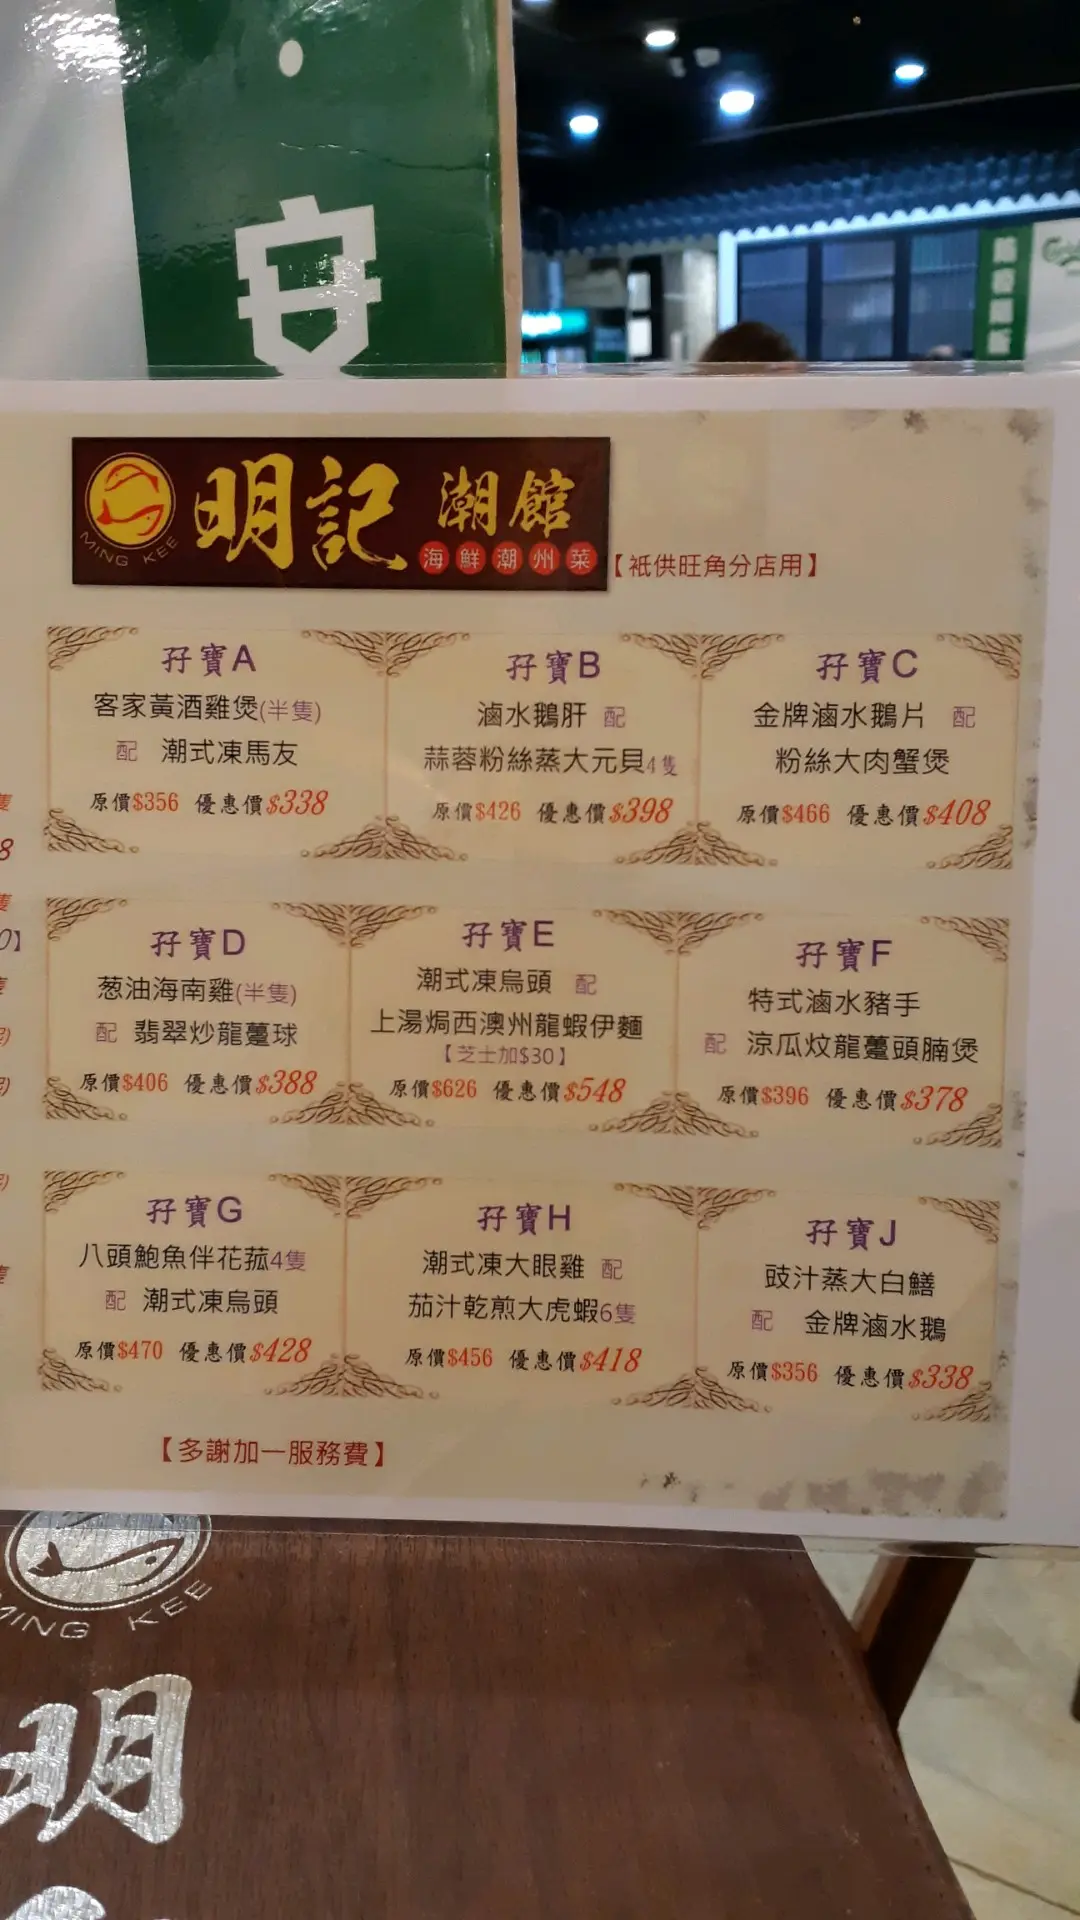 明記 潮館
海鮮潮州菜
MING KEE
【祇供旺角分店用】
孖寶A
客家黃酒雞煲(半隻)
配 潮式凍馬友
原價$356 優惠價$338
孖寶B
滷水鵝肝 配
蒜蓉粉絲蒸大元貝4隻
原價$426 優惠價$398
孖寶C
金牌滷水鵝片 配
粉絲大肉蟹煲
原價$466 優惠價$408
孖寶D
葱油海南雞(半隻)
配 翡翠炒龍躉球
原價$406 優惠價$388
孖寶E
潮式凍烏頭 配
上湯焗西澳州龍蝦伊麵
【芝士加$30】
原價$626 優惠價$548
孖寶F
特式滷水豬手
配 涼瓜炆龍躉頭腩煲
原價$396 優惠價$378
孖寶G
八頭鮑魚伴花菰4隻
配 潮式凍烏頭
原價$470 優惠價$428
孖寶H
潮式凍大眼雞 配
茄汁乾煎大虎蝦6隻
原價$456 優惠價$418
孖寶J
豉汁蒸大白鱔
配 金牌滷水鵝
原價$356 優惠價$338
【多謝加一服務費】
MING KEE
明